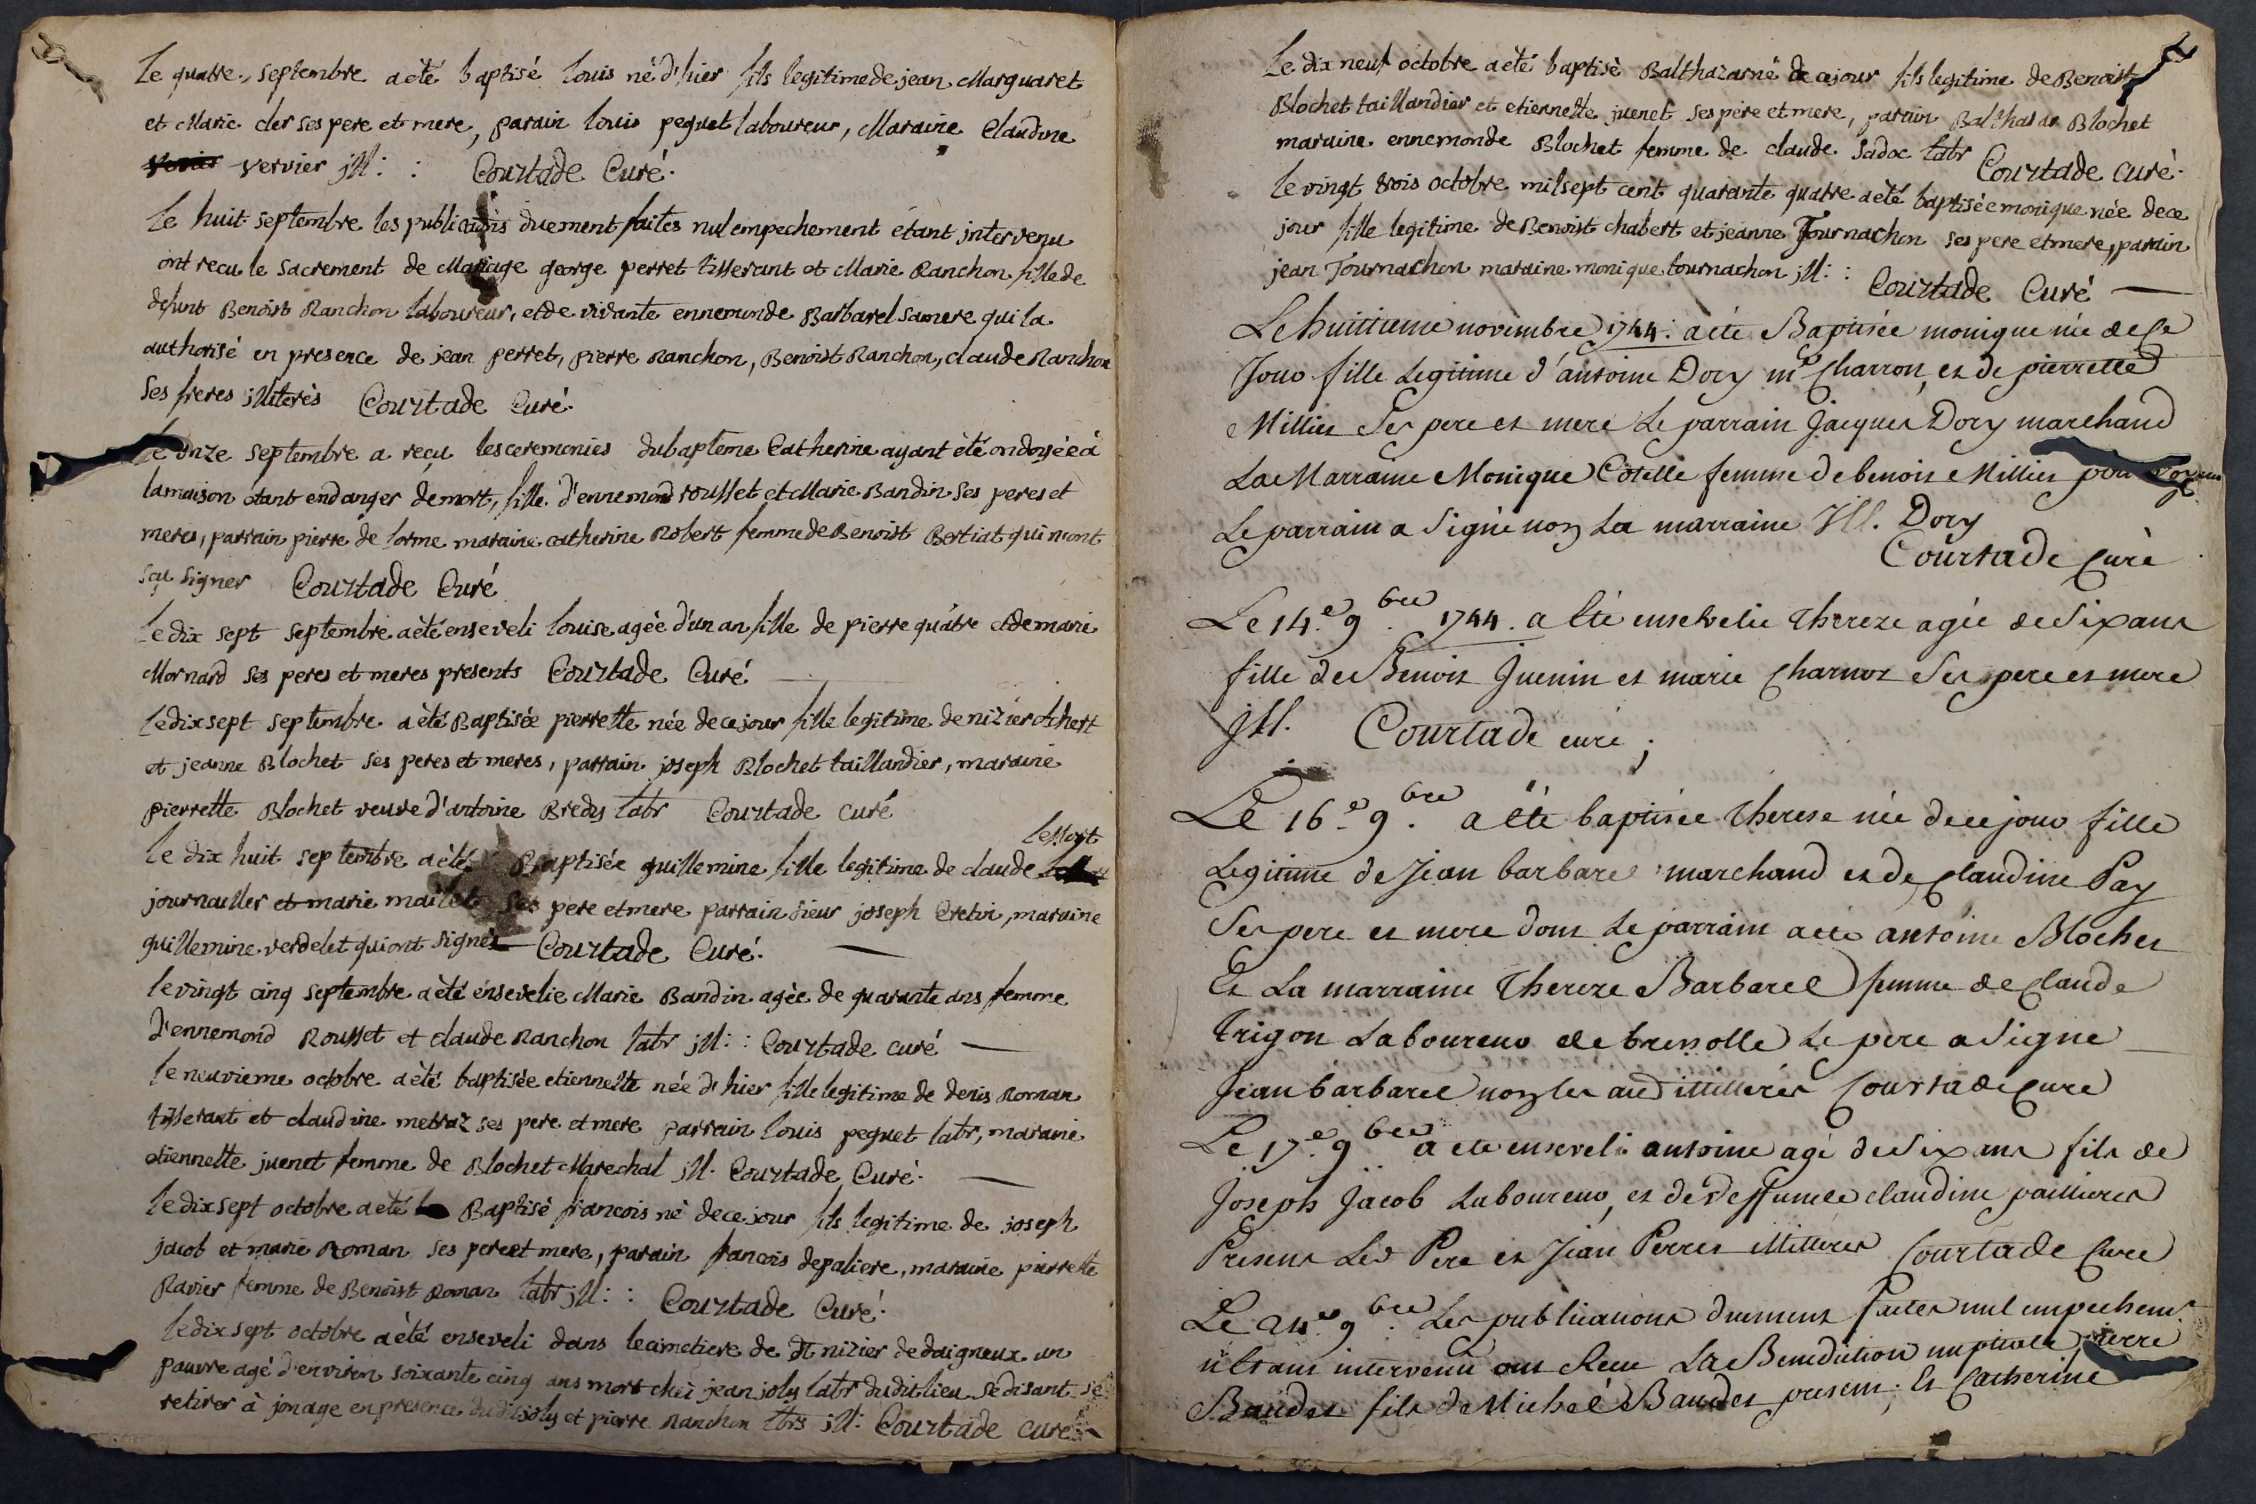 Le quatre septembre a été baptisé louis né d'hier fils legitime de jean Marguaret
et Marie cler ses pere et mere, parain louis pequet laboureur, Maraine Claudine
vervier jll : : Courtade Curé.
Le huit septembre les publications duement faites nul empechement étant jntervenu
ont recu le sacrement de Mariage george perret tisserant et Marie Ranchon fille de
defunt Benoist Ranchon laboureur, et de vivante ennemonde Barbarel sa mere qui la
authorisé en presence de jean perret, pierre Ranchon, Benoist Ranchon, claude Ranchon
ses freres jlliterés Courtade Curé.
Le onze septembre a reçu les ceremonies du bapteme Catherine ayant été ondoyée à
la maison étant en danger de mort, fille d'ennemond rousset et Marie Bandin ses peres et
meres, parrain pierre de lorme maraine catherine Robert femme de Benoist Bertiat qui n'ont
sçu signer Courtade Curé
Le dix sept septembre a été enseveli louise agée d'un an fille de pierre quatre et de marie
Mornard ses peres et meres presents Courtade Curé
Le dix sept septembre a été Baptisée pierrette née de ce jour fille legitime de nizier
et jeanne Blochet ses peres et meres, parrain joseph Blochet taillandier, maraine
pierrette Blochet veuve d'antoine Bredy labr Courtade curé
Le dix huit septembre a été Baptisée guillemine fille legitime de claude
journallier et marie mailet ses pere et mere parrain sieur joseph Cretin, maraine
guillemine verdelet qui ont signés Courtade Curé.
le vingt cinq septembre a été ensevelie Marie Bandin agée de quarante ans femme
d'ennemond Rousset et claude Ranchon labr jll : : Courtade curé
le neuvieme octobre a été baptisée etiennette née d'hier fille legitime de denis Roman
tisserant et claudine metraz ses pere et mere parrain louis pequet labr, maraine
etiennette juenet femme de Blochet Marechal jll. Courtade Curé.
le dix sept octobre a été Baptisé francois né de ce jour fils legitime de joseph
jacob et marie Roman ses pere et mere, parain francois depaliere, maraine pierrette
Ravier femme de Benoist Roman labr jll : : Courtade Curé.
le dix sept octobre a été enseveli dans le cimetiere de St nizier de daigneux un
pauvre agé d'environ soixante cinq ans mort chéz jean joly labr du dit lieu se disant se
retirer à jonage en presence du dit joly et pierre Ranchon labrs jll : Courtade curé
Le dix neuf octobre a été baptisé Balthazar né de ce jour fils legitime de Benoist
Blochet taillandier et etiennette juenet ses pere et mere, parain Balthazar Blochet
maraine ennemonde Blochet femme de claude Sadoc labr Courtade curé.
le vingt trois octobre mil sept cent quarante quatre a été baptisée monique née de ce
jour fille legitime de Benoist chabert et jeanne Tournachon ses pere et mere, parain
jean Tournachon maraine monique tournachon jll : : Courtade Curé
Le huitieme novembre 1744. a été Baptisée monique née de Ce
Jour fille Legitime d'antoine Dory me Charron, et de pierrette
Millier Ses pere et mere Le parrain Jacques Dory marchand
La Marraine Monique Cotelle femme de benoit Millier
Le parrain a Signé non La marraine Jll. Dory
Courtade Curé
Le 14e 9bre 1744. a Eté ensevelie Thereze agée de Six ans
fille de Benoit Juenin et marie Charmot Ses pere et mere
Jll. Courtade curé ;
Le 16e 9bre a été baptisée Therese née de ce jour fille
Legitime de Jean barbarel marchand et de Claudine Pay
Ses pere et mere dont Le parrain a été antoine Blochet
Et La marraine Thereze Barbarel femme de Claude
Trigon Laboureur de bressolle Le pere a Signe
Jean barbarel non les autres illitteres Courtade Curé
Le 17e 9bre a eté enseveli antoine agé de Six ans fils de
Joseph Jacob Laboureur, et de deffunte claudine paillieres
Presens Led Pere et Jean Perret illitteres Courtade Curé
Le 24e 9bre Les publications duement faites nul empechemt
n'étant intervenu ont Reçu La Benediction nuptiale pierre
Baudet fils de Michel Baudet present, Et Catherine